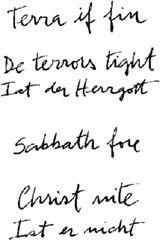 Terra if fin
De terrors tight
Ist der Herrgott
Sabbath fore
Christ nite
Ist er nicht